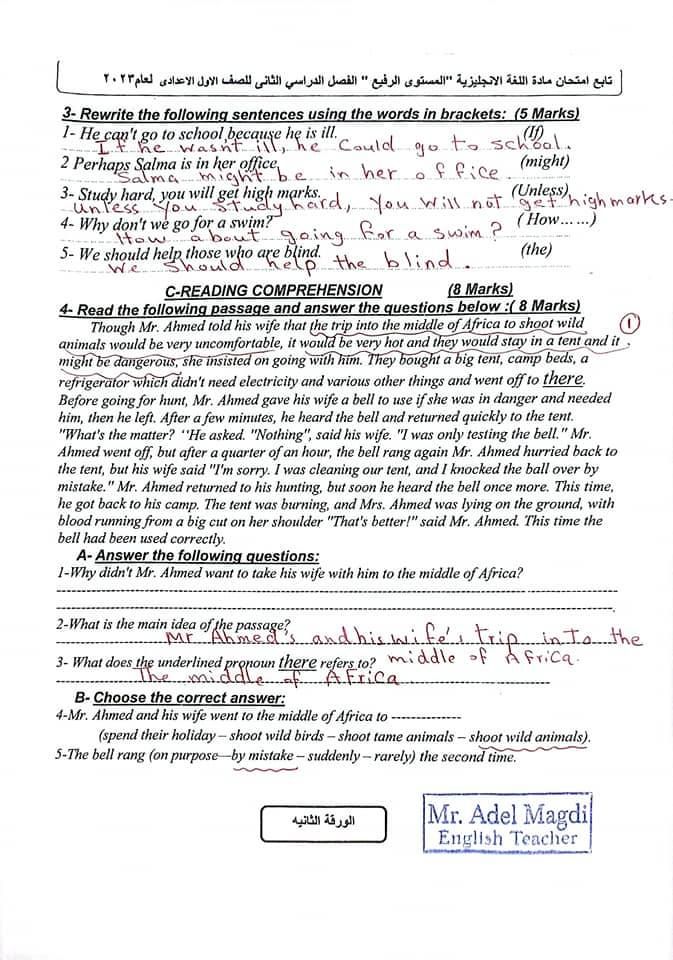 تابع امتحان مادة اللغة الانجليزية "المستوى الرفيع" الفصل الدراسي الثانى للصف الاول الاعدادى لعام ٢٠٢٣
3- Rewrite the following sentences using the words in brackets: (5 Marks)
1- He can't go to school because he is ill. (If)
If he wasn't ill, he Could go to school.
2 Perhaps Salma is in her office. (might)
Salma might be in her office.
3- Study hard, you will get high marks. (Unless)
unless you study hard, you will not get high marks.
4- Why don't we go for a swim? ( How... ...)
How about going for a swim?
5- We should help those who are blind. (the)
We should help the blind.
C-READING COMPREHENSION (8 Marks)
4- Read the following passage and answer the questions below :( 8 Marks)
Though Mr. Ahmed told his wife that the trip into the middle of Africa to shoot wild ①
animals would be very uncomfortable, it would be very hot and they would stay in a tent and it
might be dangerous, she insisted on going with him. They bought a big tent, camp beds, a
refrigerator which didn't need electricity and various other things and went off to there.
Before going for hunt, Mr. Ahmed gave his wife a bell to use if she was in danger and needed
him, then he left. After a few minutes, he heard the bell and returned quickly to the tent.
"What's the matter? ''He asked. "Nothing", said his wife. "I was only testing the bell." Mr.
Ahmed went off, but after a quarter of an hour, the bell rang again Mr. Ahmed hurried back to
the tent, but his wife said "I'm sorry. I was cleaning our tent, and I knocked the ball over by
mistake." Mr. Ahmed returned to his hunting, but soon he heard the bell once more. This time,
he got back to his camp. The tent was burning, and Mrs. Ahmed was lying on the ground, with
blood running from a big cut on her shoulder "That's better!" said Mr. Ahmed. This time the
bell had been used correctly.
A- Answer the following questions:
1-Why didn't Mr. Ahmed want to take his wife with him to the middle of Africa?
2-What is the main idea of the passage?
Mr Ahmed's and his wife's trip into the
middle of Africa.
3- What does the underlined pronoun there refers to?
The middle of Africa
B- Choose the correct answer:
4-Mr. Ahmed and his wife went to the middle of Africa to --------------
(spend their holiday – shoot wild birds – shoot tame animals – shoot wild animals).
5-The bell rang (on purpose—by mistake – suddenly – rarely) the second time.
الورقة الثانيه
Mr. Adel Magdi
English Teacher